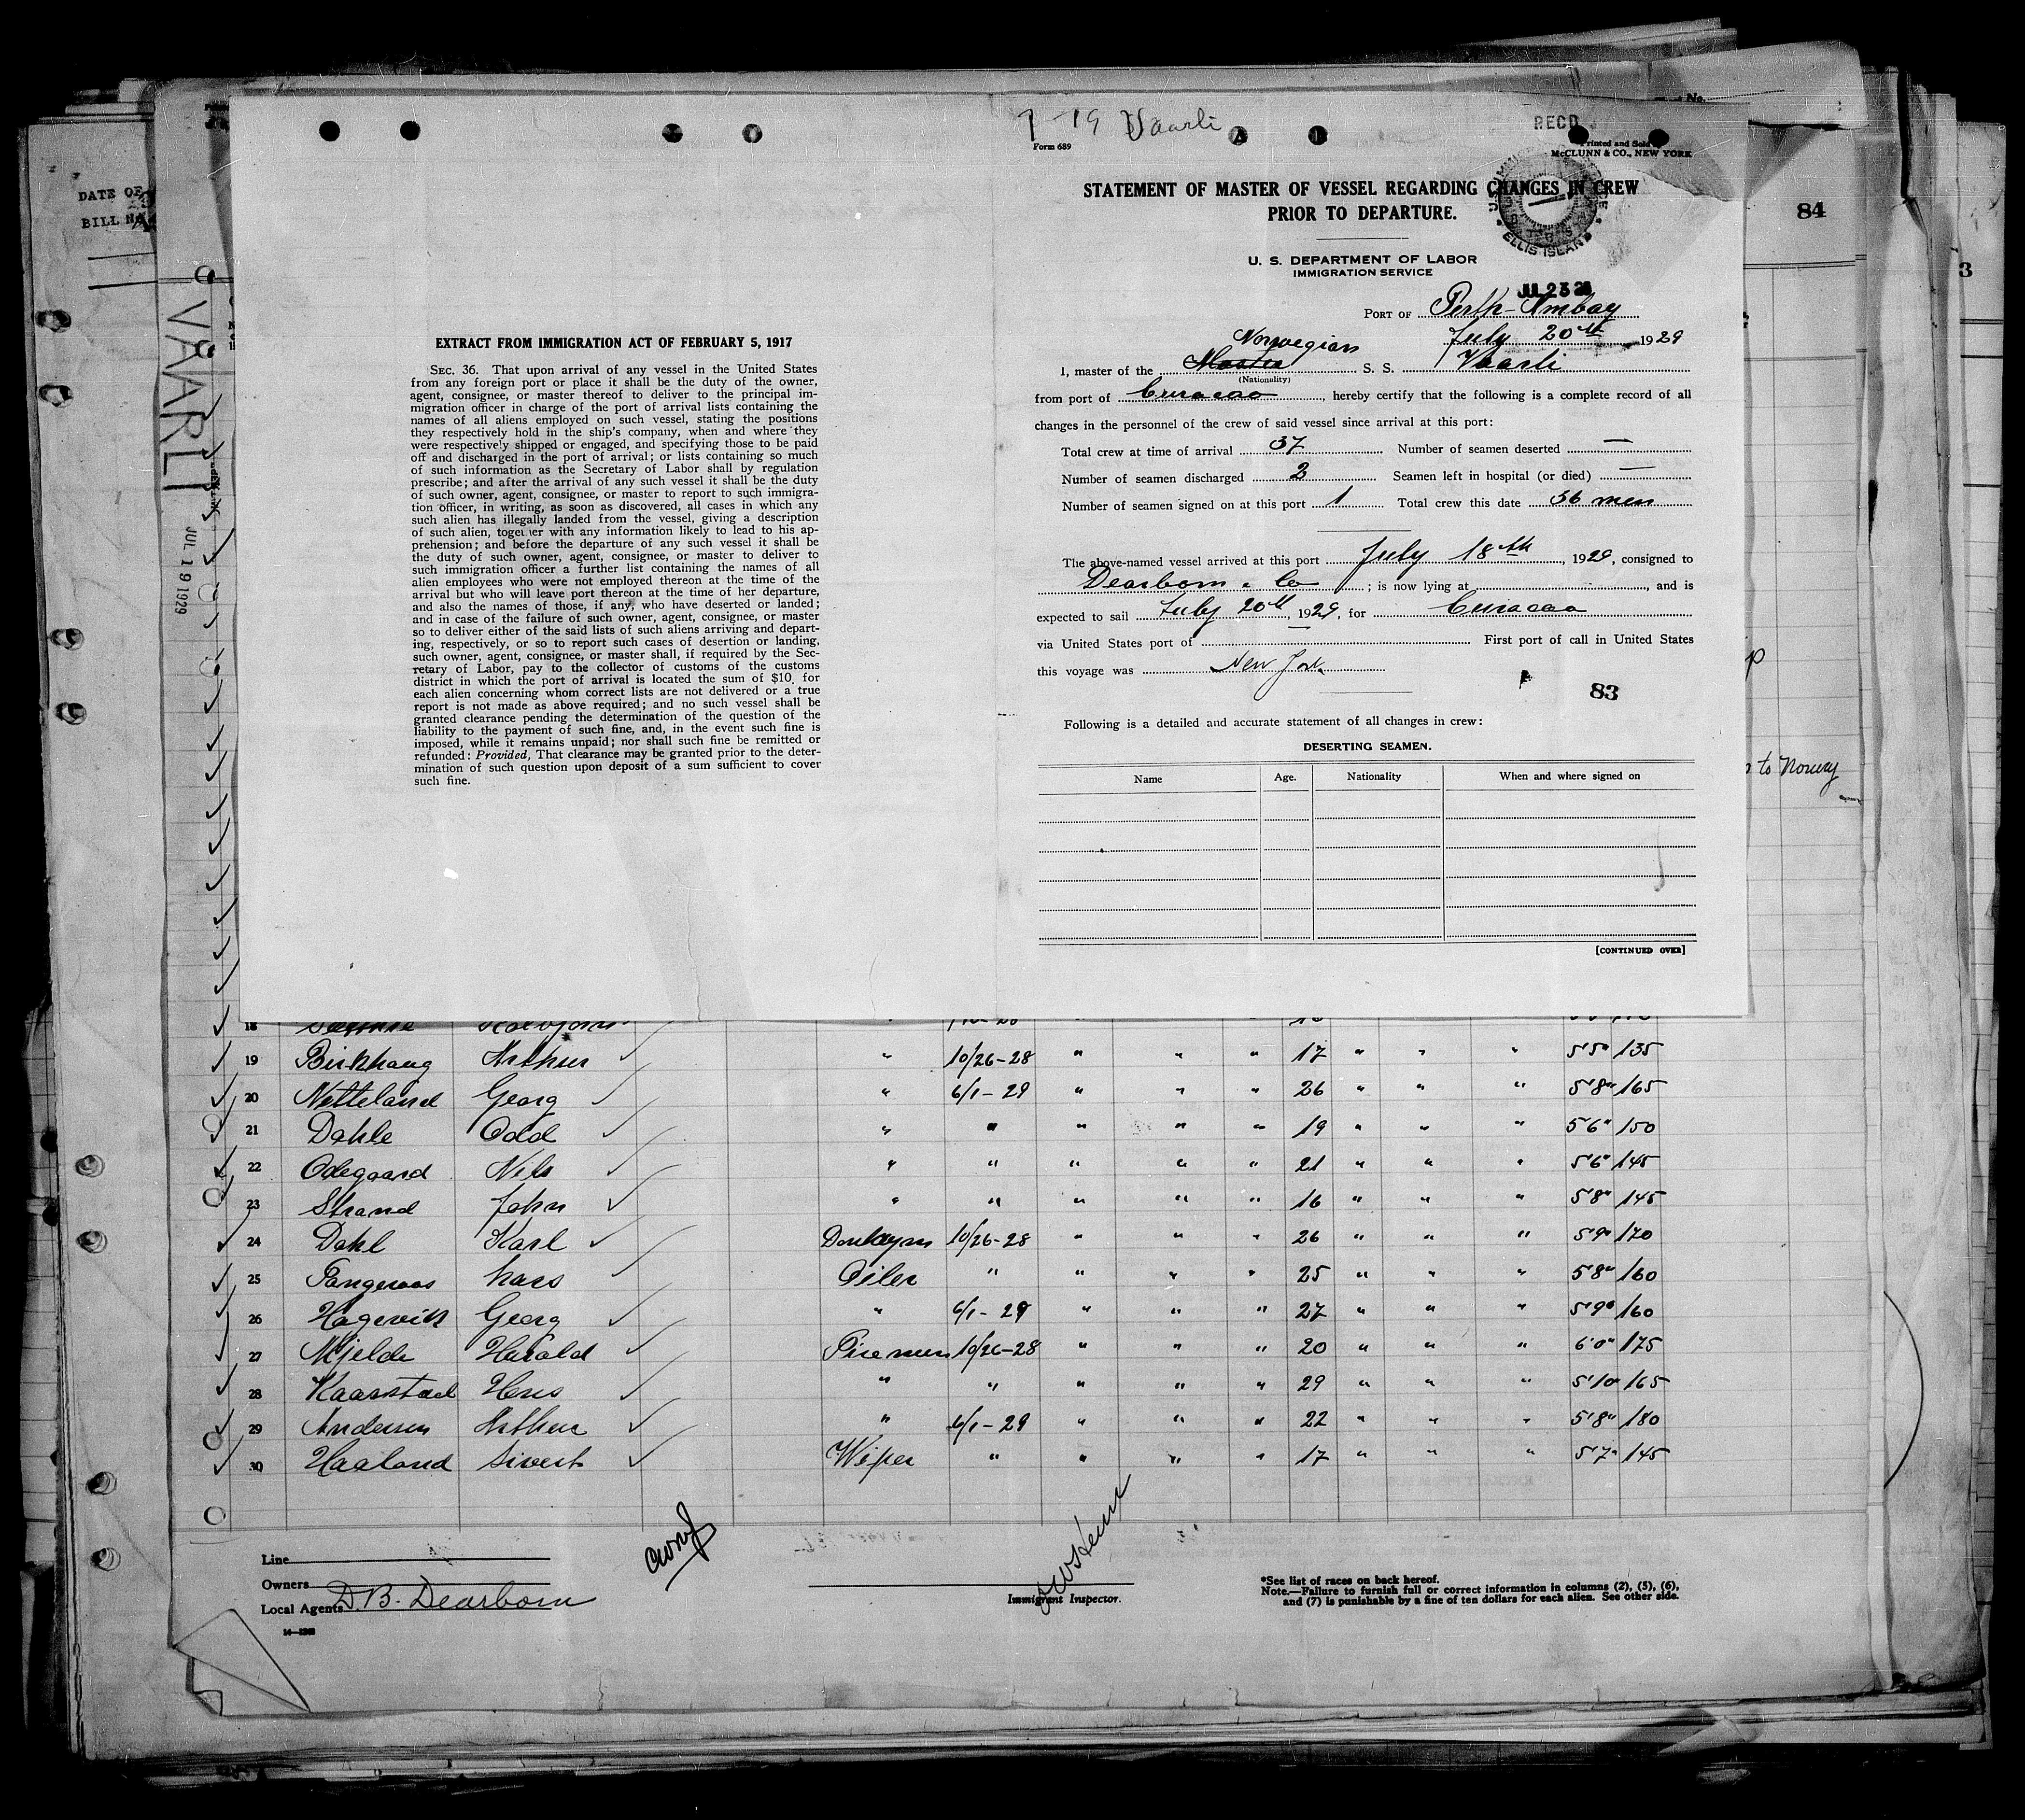 DATE OF
BILL No.
VAARLI
JUL 19 1929
84
3
No.
EXTRACT FROM IMMIGRATION ACT OF FEBRUARY 5, 1917
SEC. 36. That upon arrival of any vessel in the United States
from any foreign port or place it shall be the duty of the owner,
agent, consignee, or master thereof to deliver to the principal im-
migration officer in charge of the port of arrival lists containing the
names of all aliens employed on such vessel, stating the positions
they respectively hold in the ship's company, when and where they
were respectively shipped or engaged, and specifying those to be paid
off and discharged in the port of arrival; or lists containing so much
of such information as the Secretary of Labor shall by regulation
prescribe; and after the arrival of any such vessel it shall be the duty
of such owner, agent, consignee, or master to report to such immigra-
tion officer, in writing, as soon as discovered, all cases in which any
such alien has illegally landed from the vessel, giving a description
of such alien, together with any information likely to lead to his ap-
prehension; and before the departure of any such vessel it shall be
the duty of such owner, agent, consignee, or master to deliver to
such immigration officer a further list containing the names of all
alien employees who were not employed thereon at the time of the
arrival but who will leave port thereon at the time of her departure,
and also the names of those, if any, who have deserted or landed;
and in case of the failure of such owner, agent, consignee, or master
so to deliver either of the said lists of such aliens arriving and depart-
ing, respectively, or so to report such cases of desertion or landing,
such owner, agent, consignee, or master shall, if required by the Sec-
retary of Labor, pay to the collector of customs of the customs
district in which the port of arrival is located the sum of $10. for
each alien concerning whom correct lists are not delivered or a true
report is not made as above required; and no such vessel shall be
granted clearance pending the determination of the question of the
liability to the payment of such fine, and, in the event such fine is
imposed, while it remains unpaid; nor shall such fine be remitted or
refunded: Provided, That clearance may be granted prior to the deter-
mination of such question upon deposit of a sum sufficient to cover
such fine.
7-19 Vaarli
Form 689
RECD
Printed and Sold by
McCLUNN & CO., NEW YORK
STATEMENT OF MASTER OF VESSEL REGARDING CHANGES IN CREW
PRIOR TO DEPARTURE.
ELLIS ISLAND
U. S. DEPARTMENT OF LABOR
IMMIGRATION SERVICE
JUL 23 29
PORT OF Perth-Amboy
July 20th 1929
Norwegian
I, master of the S. S. Vaarli
(Nationality)
from port of Curacao, hereby certify that the following is a complete record of all
changes in the personnel of the crew of said vessel since arrival at this port:
Total crew at time of arrival 37 Number of seamen deserted —
Number of seamen discharged 2 Seamen left in hospital (or died) —
Number of seamen signed on at this port 1 Total crew this date 36 men
The above-named vessel arrived at this port July 18th, 1929, consigned to
Dearborn & Co; is now lying at , and is
expected to sail July 20th, 1929, for Curacao
via United States port of First port of call in United States
this voyage was New York
83
Following is a detailed and accurate statement of all changes in crew:
DESERTING SEAMEN.
Name Age. Nationality When and where signed on
[CONTINUED OVER]
to Norway
18
19 Birkhaug Arthur " 10/26-28 " " " 17 " " " 5'5" 135
20 Netteland Georg " 6/1-29 " " " 26 " " " 5'8" 165
21 Dahle Odd " " " " " 19 " " " 5'6" 150
22 Odegaard Nils " " " " " 21 " " " 5'6" 145
23 Strand John " " " " " 16 " " " 5'8" 145
24 Dahl Karl Donkeyman 10/26-28 " " " 26 " " " 5'9" 170
25 Tangeraas Lars Oiler " " " " 25 " " " 5'8" 160
26 Hagevik Georg " 6/1-29 " " " 27 " " " 5'9" 160
27 Mjelde Harald Firemen 10/26-28 " " " 20 " " " 6'0" 175
28 Kaarstad Hans " " " " " 29 " " " 5'10" 165
29 Andersen Arthur " 6/1-29 " " " 22 " " " 5'8" 180
30 Haaland Sivert Wiper " " " " 17 " " " 5'7" 145
Line
Owners
Local Agents D.B. Dearborn
14—1268
Immigrant Inspector.
*See list of races on back hereof.
Note.—Failure to furnish full or correct information in columns (2), (5), (6),
and (7) is punishable by a fine of ten dollars for each alien. See other side.